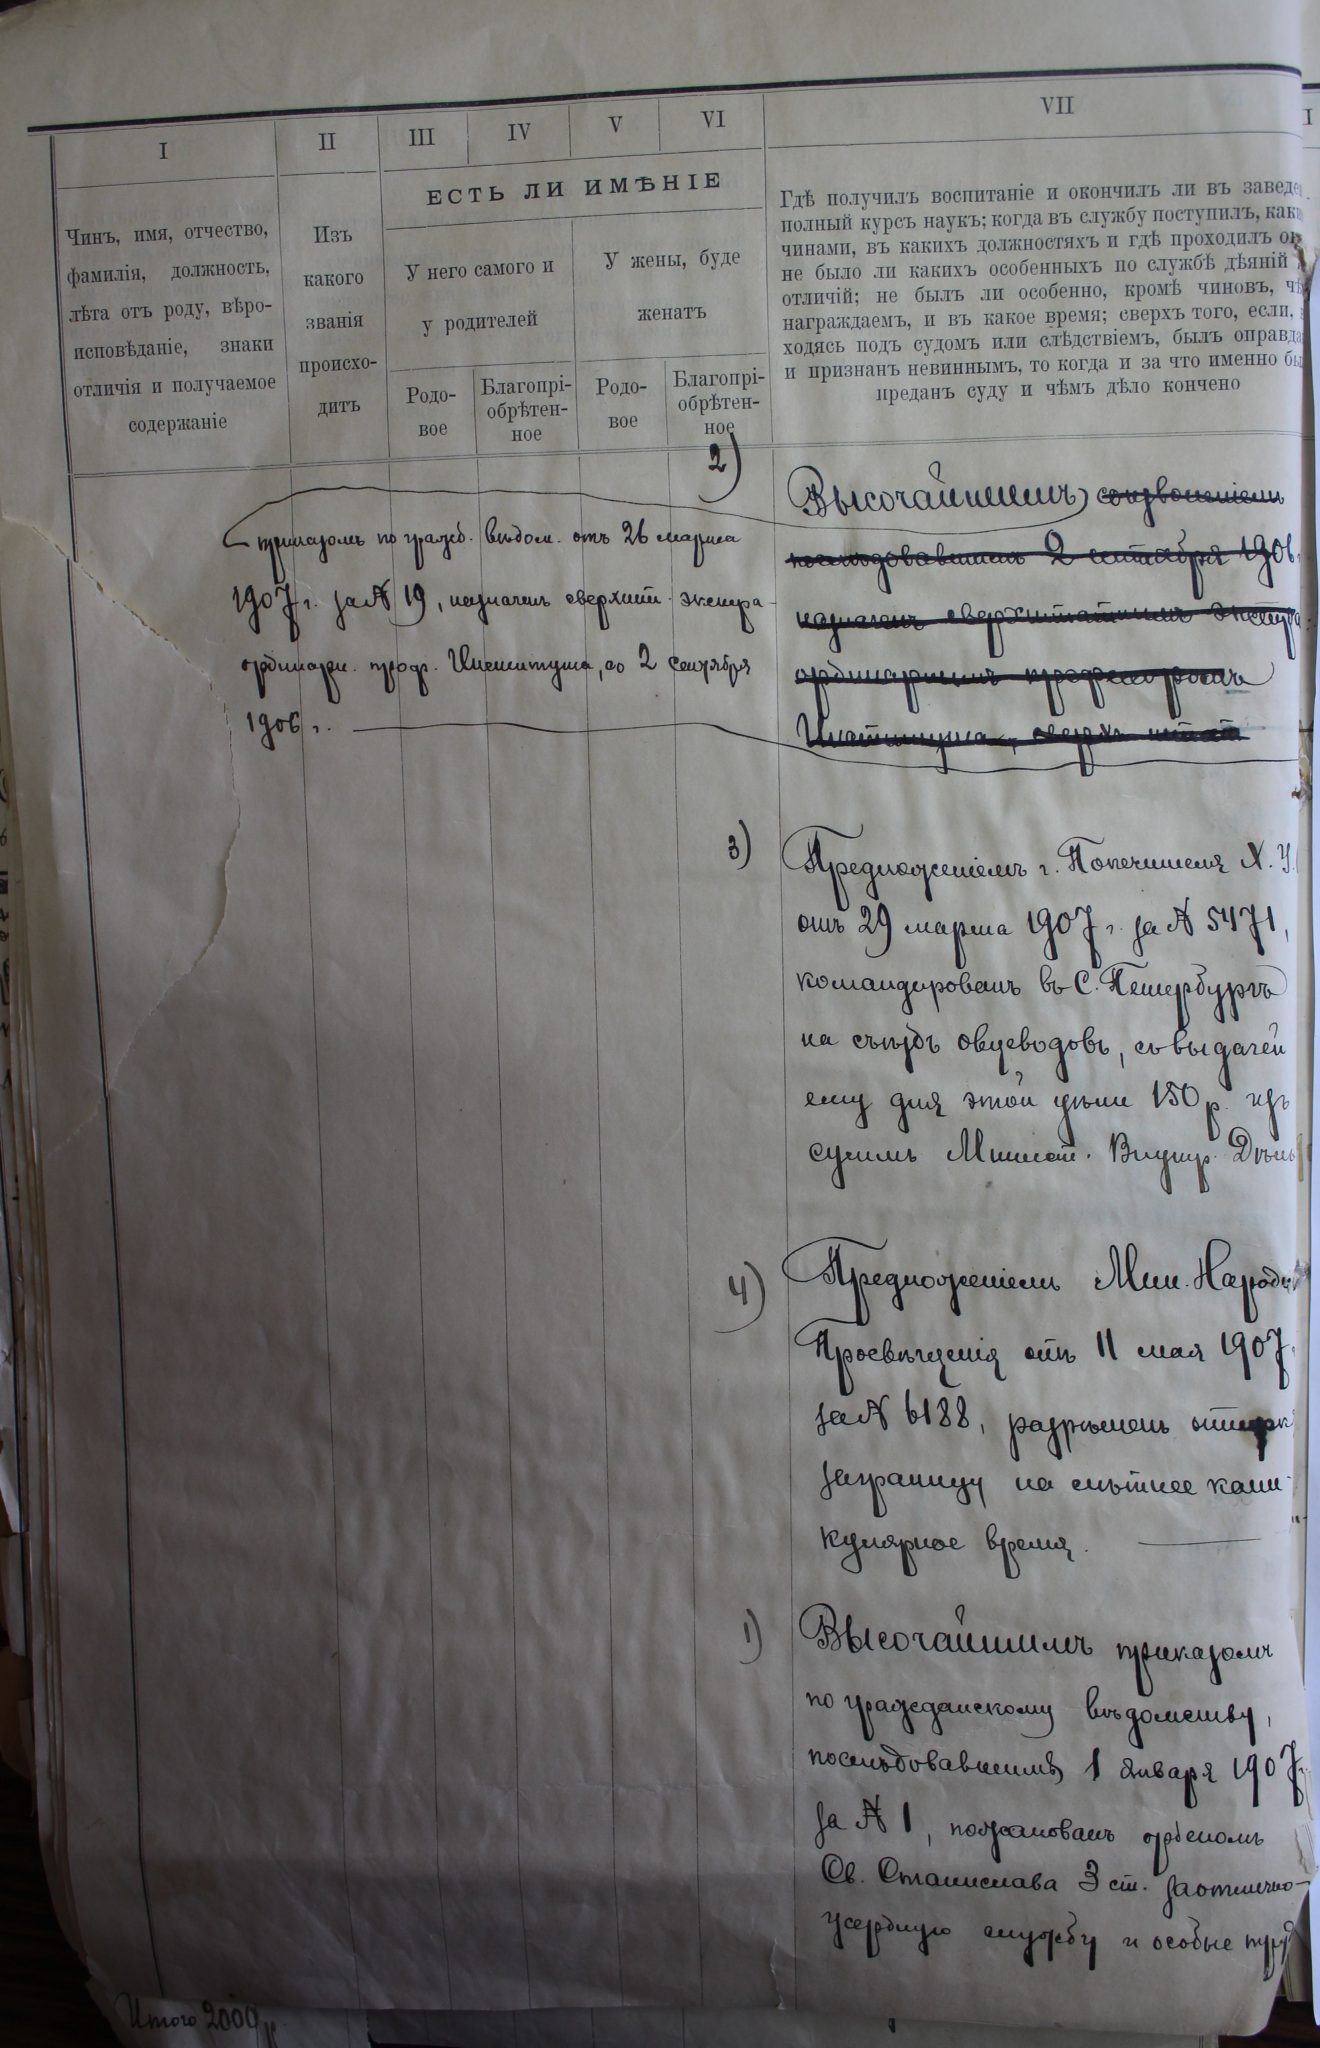 I II III IV V VI VII
ЕСТЬ ЛИ ИМѢНІЕ
Чинъ, имя, отчество,
фамилія, должность,
лѣта отъ роду, вѣро-
исповѣданіе, знаки
отличія и получаемое
содержаніе
Изъ
какого
званія
происхо-
дитъ
У него самого и
у родителей
У жены, буде
женатъ
Родо-
вое
Благопрі-
обрѣтен-
ное
Родо-
вое
Благопрі-
обрѣтен-
ное
Гдѣ получилъ воспитаніе и окончилъ ли въ заведе
полный курсъ наукъ; когда въ службу поступилъ, как
чинами, въ какихъ должностяхъ и гдѣ проходилъ о
не было ли какихъ особенныхъ по службѣ дѣяній
отличій; не былъ ли особенно, кромѣ чиновъ, ч
награждаемъ, и въ какое время; сверхъ того, если,
ходясь подъ судомъ или слѣдствіемъ, былъ оправда
и признанъ невиннымъ, то когда и за что именно бы
преданъ суду и чѣмъ дѣло кончено
2) Высочайшимъ соизволеніемъ
послѣдовавшимъ 2 сентября 1906
назначенъ сверхштатнымъ экстра
ординарнымъ профессоромъ
Института, сверхъ штата
приказомъ по гражд. вѣдом. отъ 26 марта
1907 г. за № 19, назначенъ сверхшт. экстра-
ординарн. проф. Института, со 2 сентября
1906 г.
3) Предложеніемъ г. Попечителя Х. У.
отъ 29 марта 1907 г. за № 5471,
командированъ въ С. Петербургъ
на съѣздъ овцеводовъ, съ выдачей
ему для этой цѣли 150 р. изъ
суммъ Минист. Внутр. Дѣлъ
4) Предложеніемъ Мин. Народн
Просвѣщенія отъ 11 мая 1907
за № 6188, разрѣшенъ отпускъ
заграницу на лѣтнее кани-
кулярное время.
1) Высочайшимъ приказомъ
по гражданскому вѣдомству,
послѣдовавшимъ 1 января 1907
за № 1, пожалованъ орденомъ
Св. Станислава 3 ст. за отлично-
усердную службу и особые труд
Итого 2000 р